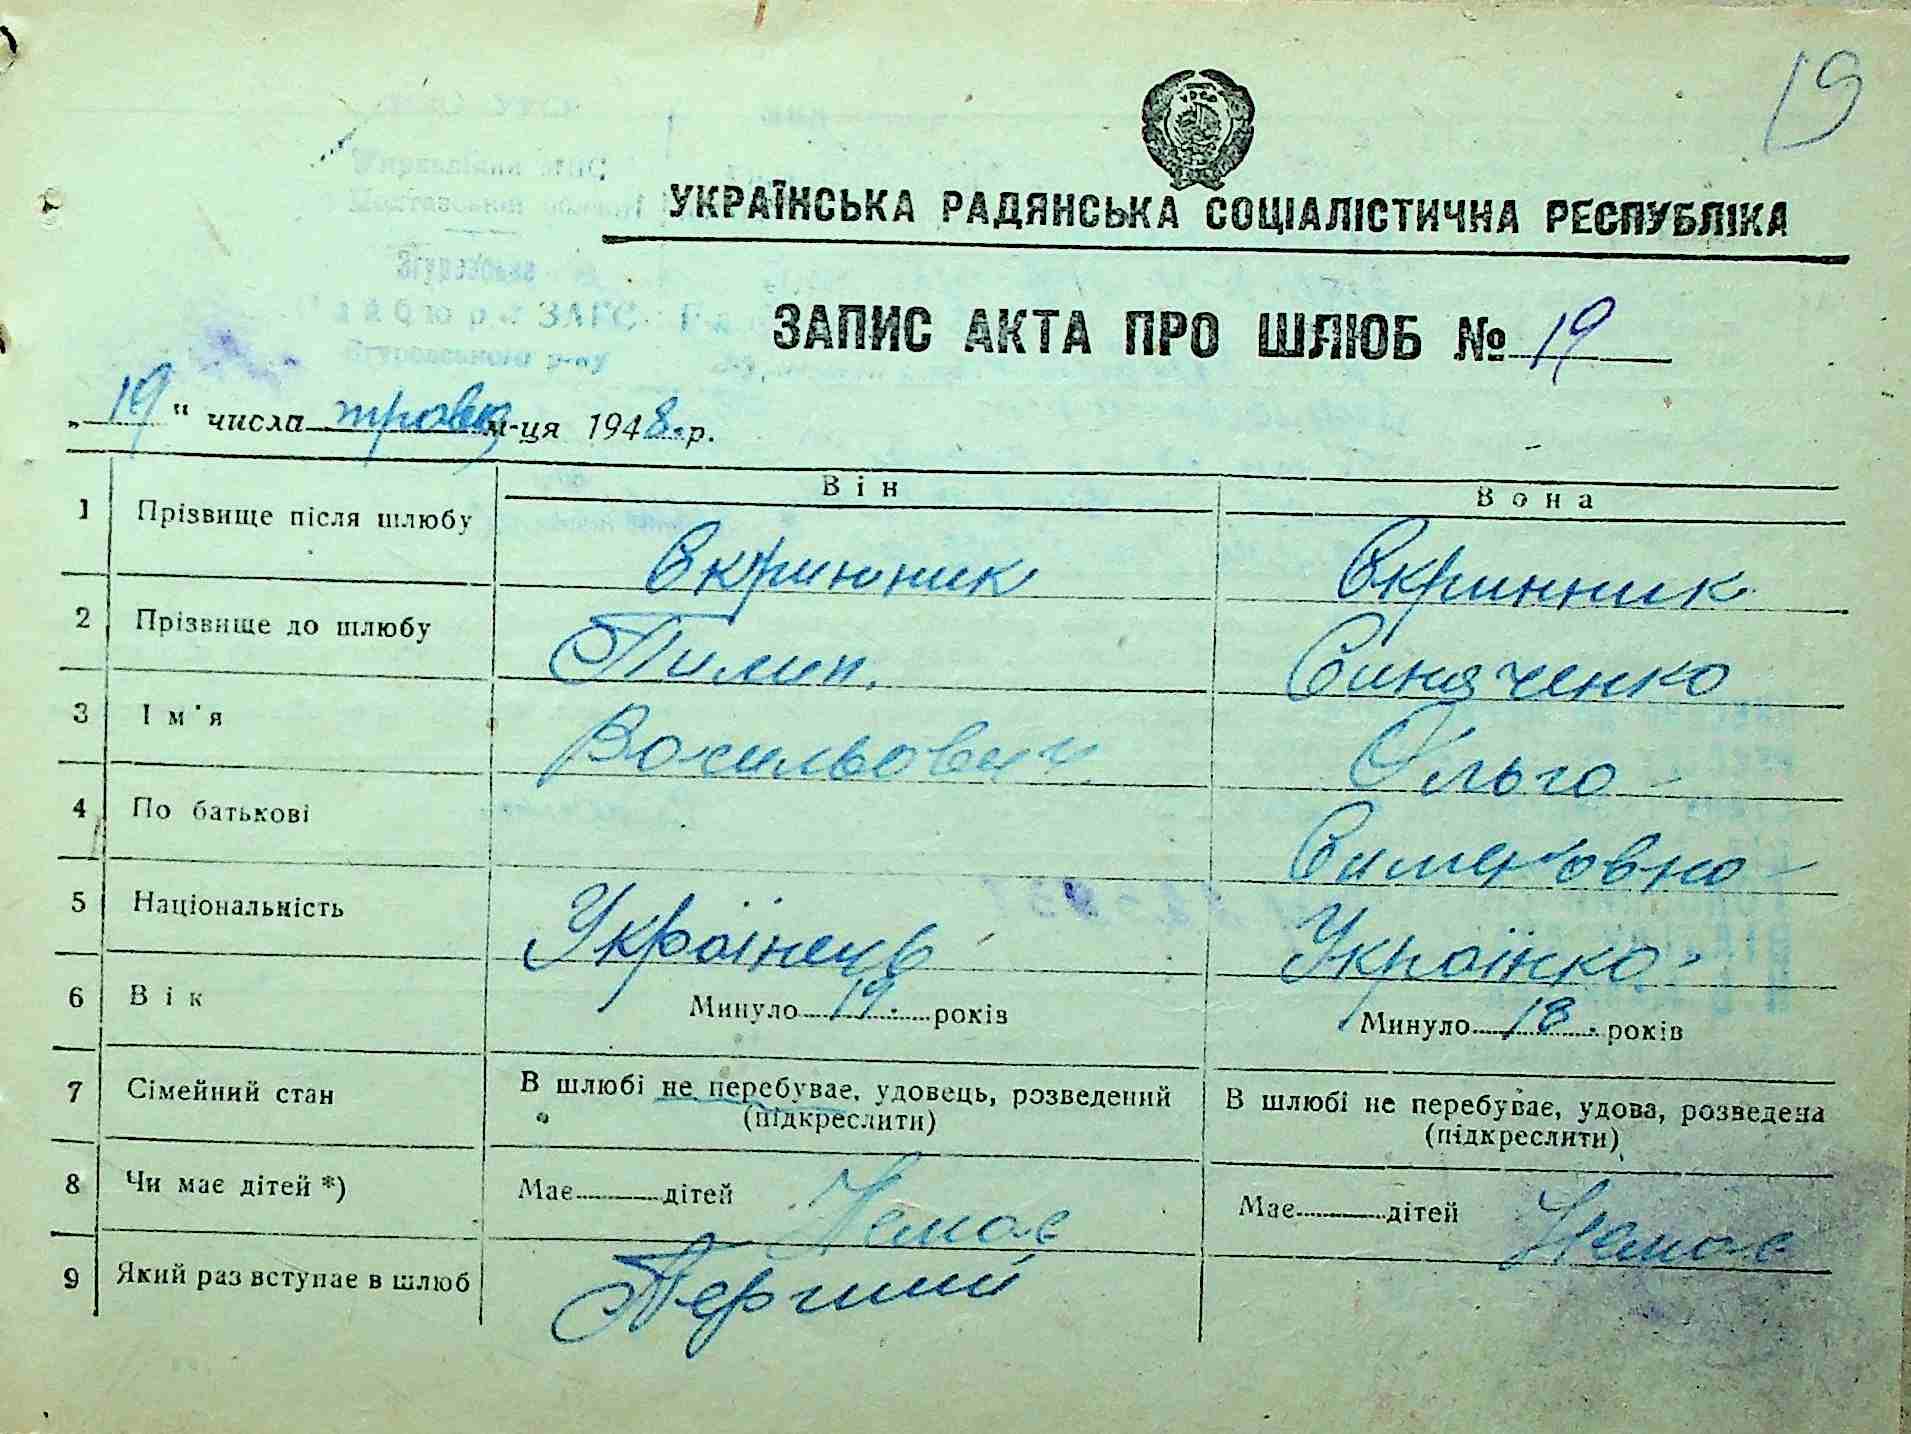 19
УРСР
УКРАЇНСЬКА РАДЯНСЬКА СОЦІАЛІСТИЧНА РЕСПУБЛІКА
ЗАПИС АКТА ПРО ШЛЮБ № 19
„19" числа травня м-ця 1948 р.
Він Вона
1 Прізвище після шлюбу Скринник Скринник
2 Прізвище до шлюбу Пилип. Синяченко
3 Ім'я Васильович Ольга
4 По батькові Семеновна
5 Національність Українець Українка
6 Вік Минуло 19 років Минуло 18 років
7 Сімейний стан В шлюбі не перебуває, удовець, розведений В шлюбі не перебуває, удова, розведена
(підкреслити) (підкреслити)
8 Чи має дітей *) Має дітей Немає Має дітей Немає
9 Який раз вступає в шлюб Перший